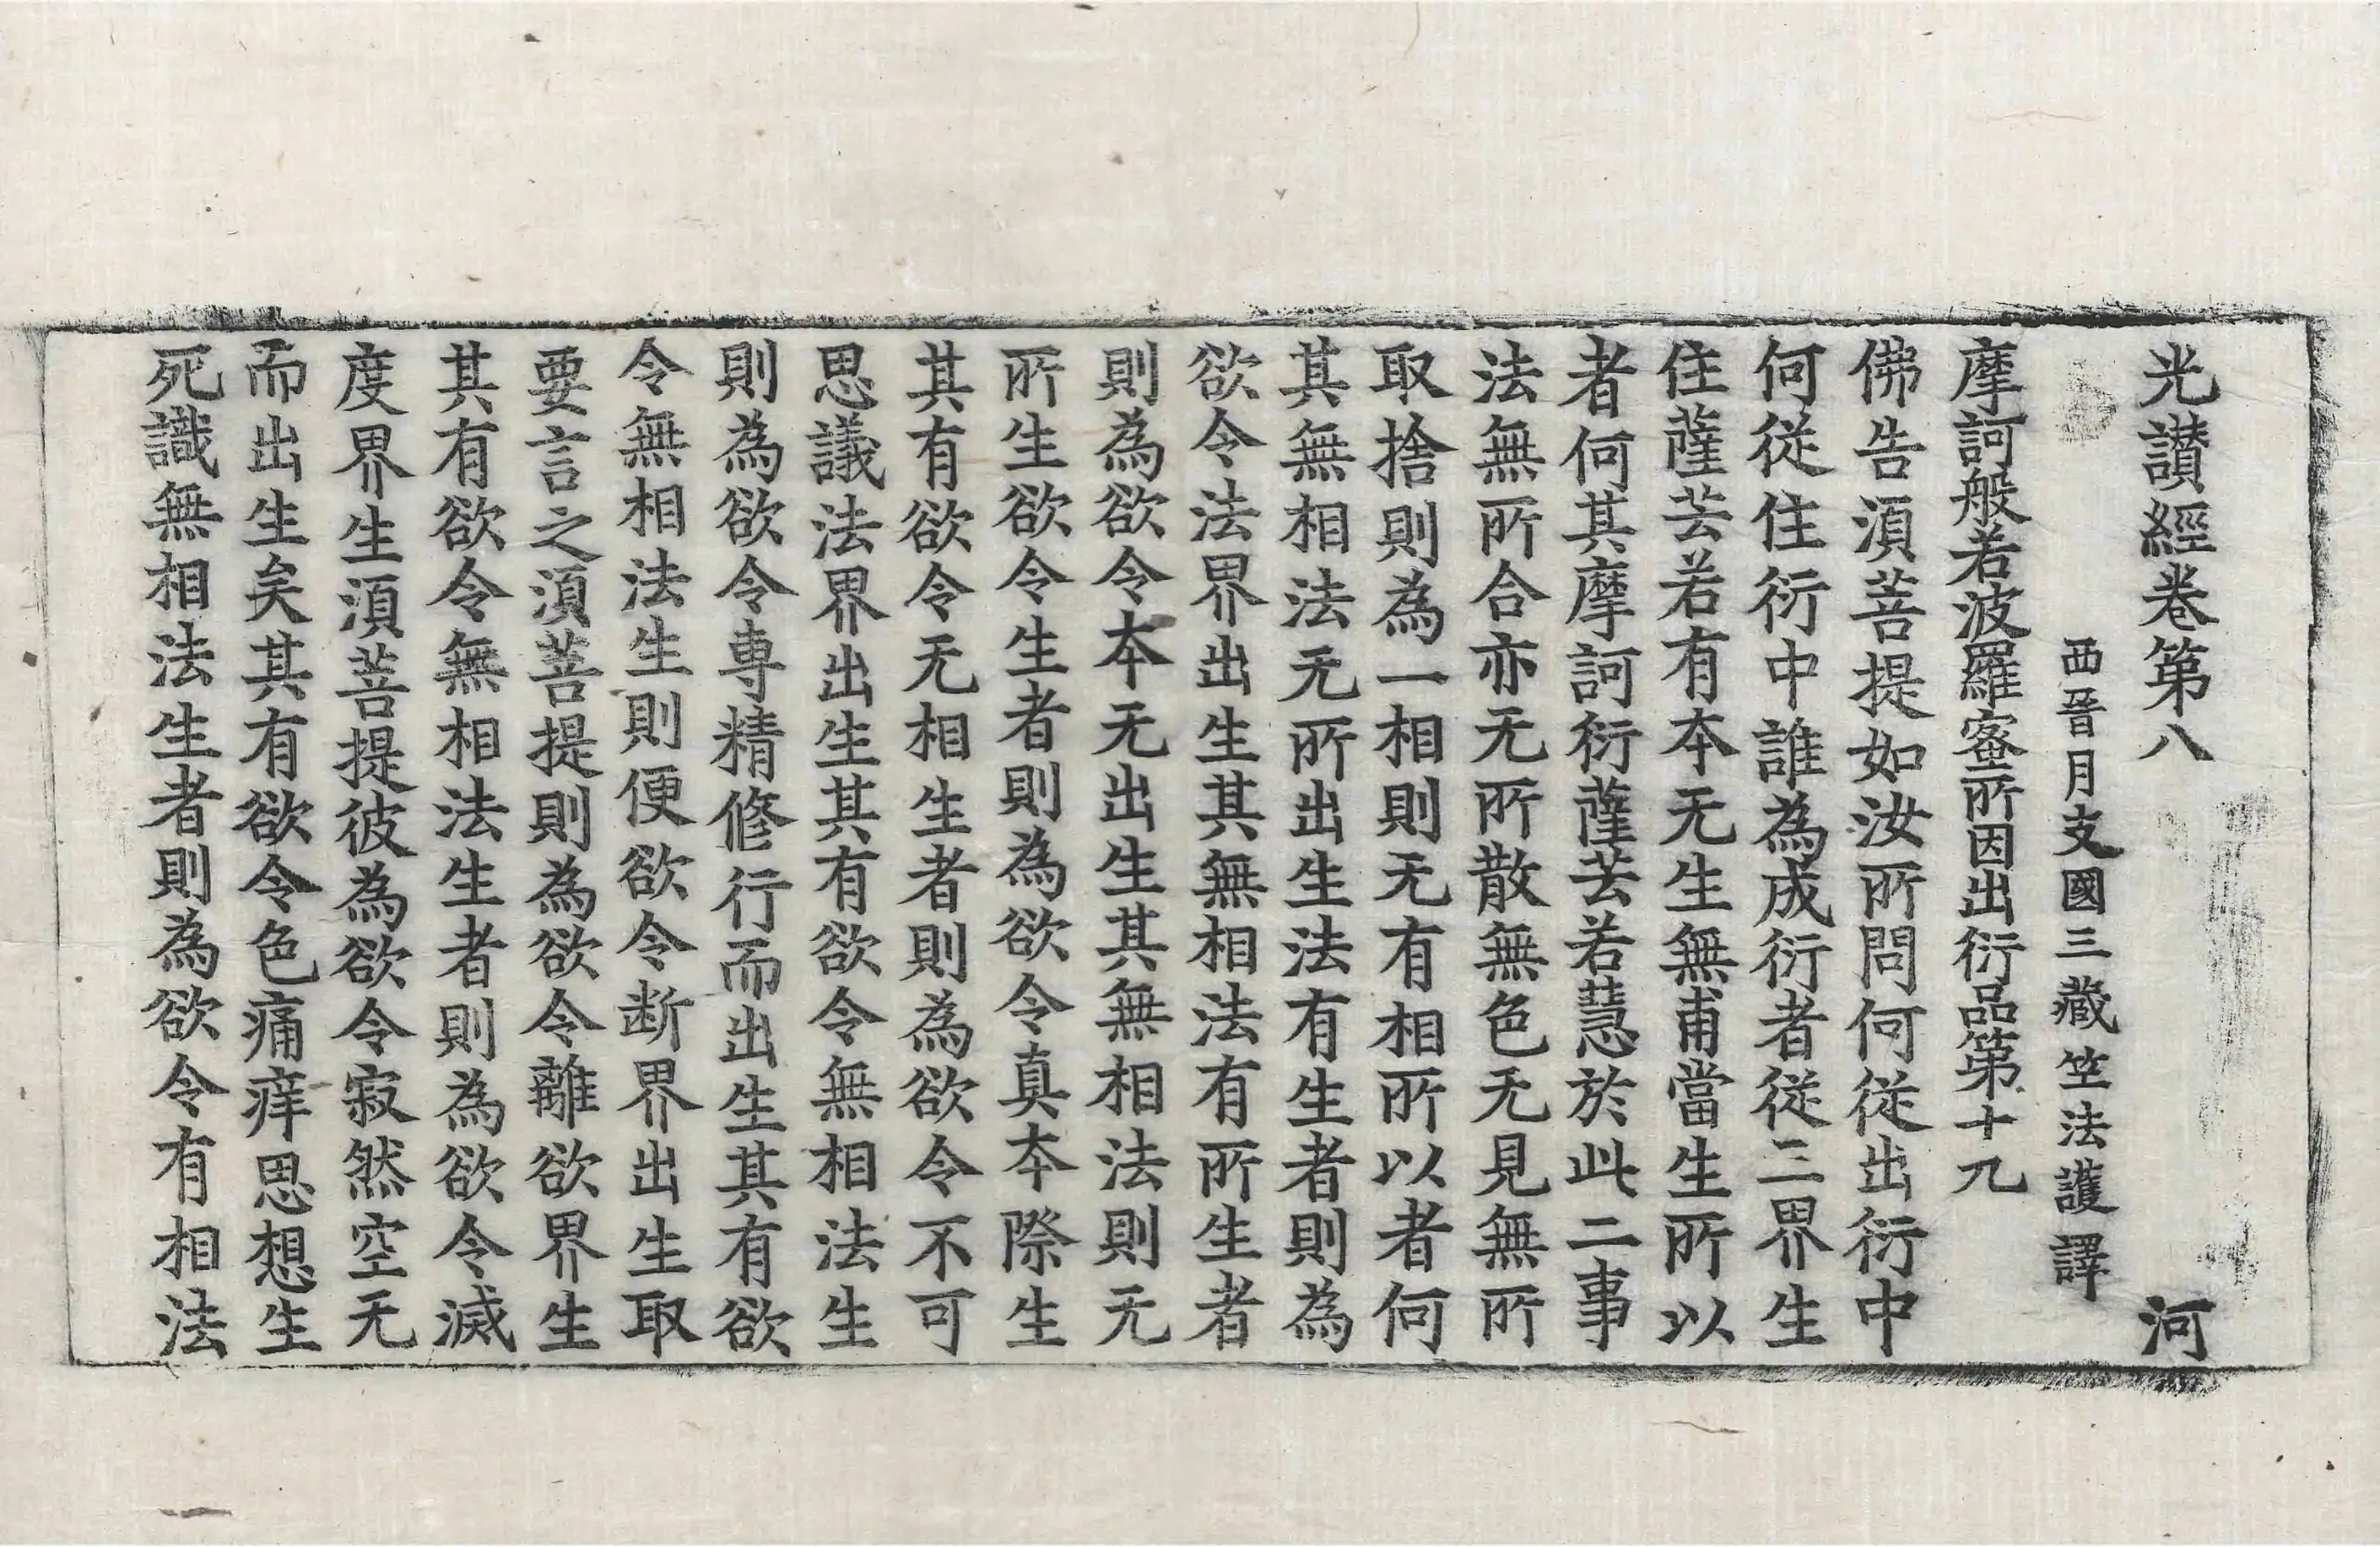 光讃經卷第八 河
西晉月支國三藏竺法護譯
摩訶般若波羅蜜所因出衍品第十九
佛告須菩提如汝所問何從出衍中
何從住衍中誰為成衍者從三界生
住薩芸若有本无生無甫當生所以
者何其摩訶衍薩芸若慧於此二事
法無所合亦无所散無色无見無所
取捨則為一相則无有相所以者何
其無相法无所出生法有生者則為
欲令法界出生其無相法有所生者
則為欲令本无出生其無相法則无
所生欲令生者則為欲令真本際生
其有欲令无相生者則為欲令不可
思議法界出生其有欲令無相法生
則為欲令專精修行而出生其有欲
令無相法生則便欲令断界出生取
要言之須菩提則為欲令離欲界生
其有欲令無相法生者則為欲令滅
度界生須菩提彼為欲令寂然空无
而出生矣其有欲令色痛痒思想生
死識無相法生者則為欲令有相法